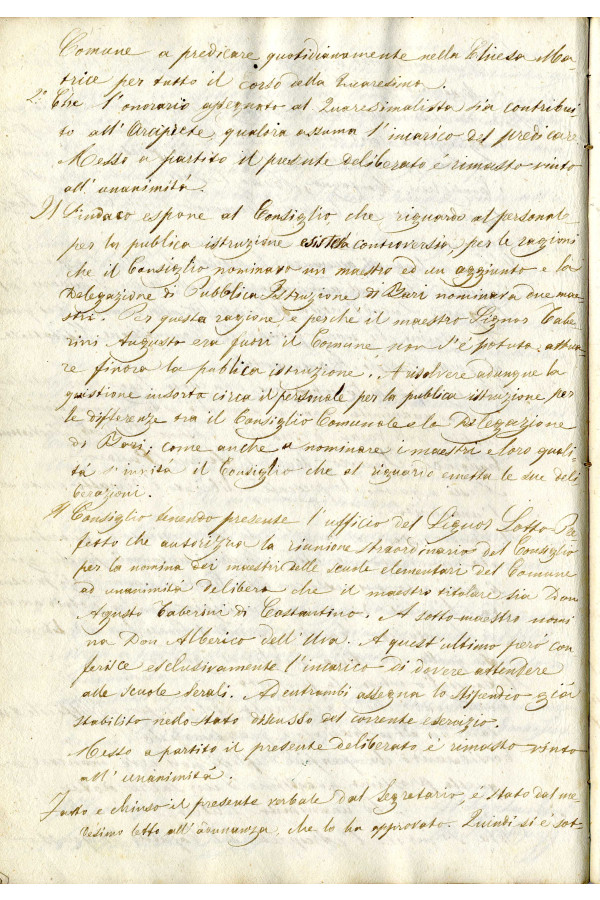 Comune a predicare quotidianamente nella Chiesa Ma-
trice per tutto il corso della Quaresima.
2.° Che l'onorario assegnato al Quaresimalista sia contribui
to all'Arciprete, qualora assuma l'incarico del predicare
Messo a partito il presente deliberato è rimasto vinto
all'unanimità.
Il Sindaco espone al Consiglio che riguardo al personale
per la publica istruzione esisteva controversia, per le ragioni
che il Consiglio nominava un maestro ed un aggiunto e la
Delegazione di Pubblica Istruzione di Bari nominava due mae
stri. Per questa ragione, e perché il maestro Signor Tabe
rini Augusto era fuori il Comune, non s'è potuta attua
re finora la publica istruzione. A risolvere adunque la
quistione insorta circa il personale per la publica istruzione per
le differenze tra il Consiglio Comunale e la Delegazione
di Bari; come anche a nominare i maestri e loro quali
tà s'invita il Consiglio che al riguardo emetta le sue deli
berazioni.
Il Consiglio tenendo presente l'ufficio del Signor Sotto Pre
fetto che autorizza la riunione straordinaria del Consiglio
per la nomina dei maestri delle scuole elementari del Comune
ad unanimità delibera che il maestro titolare sia Don
Agusto Taberini di Costantino. A sotto-maestro nomi
na Don Alberico dell'Uva. A quest'ultimo però con
ferisce esclusivamente l'incarico di dovere attendere
alle scuole serali. Ad entrambi assegna lo stipendio già
stabilito nello stato discusso del corrente esercizio.
Messo a partito il presente deliberato è rimasto vinto
all'unanimità.
Fatto e chiuso il presente verbale dal Segretario, è stato dal me-
desimo letto all'adunanza, che lo ha approvato. Quindi si è sot-